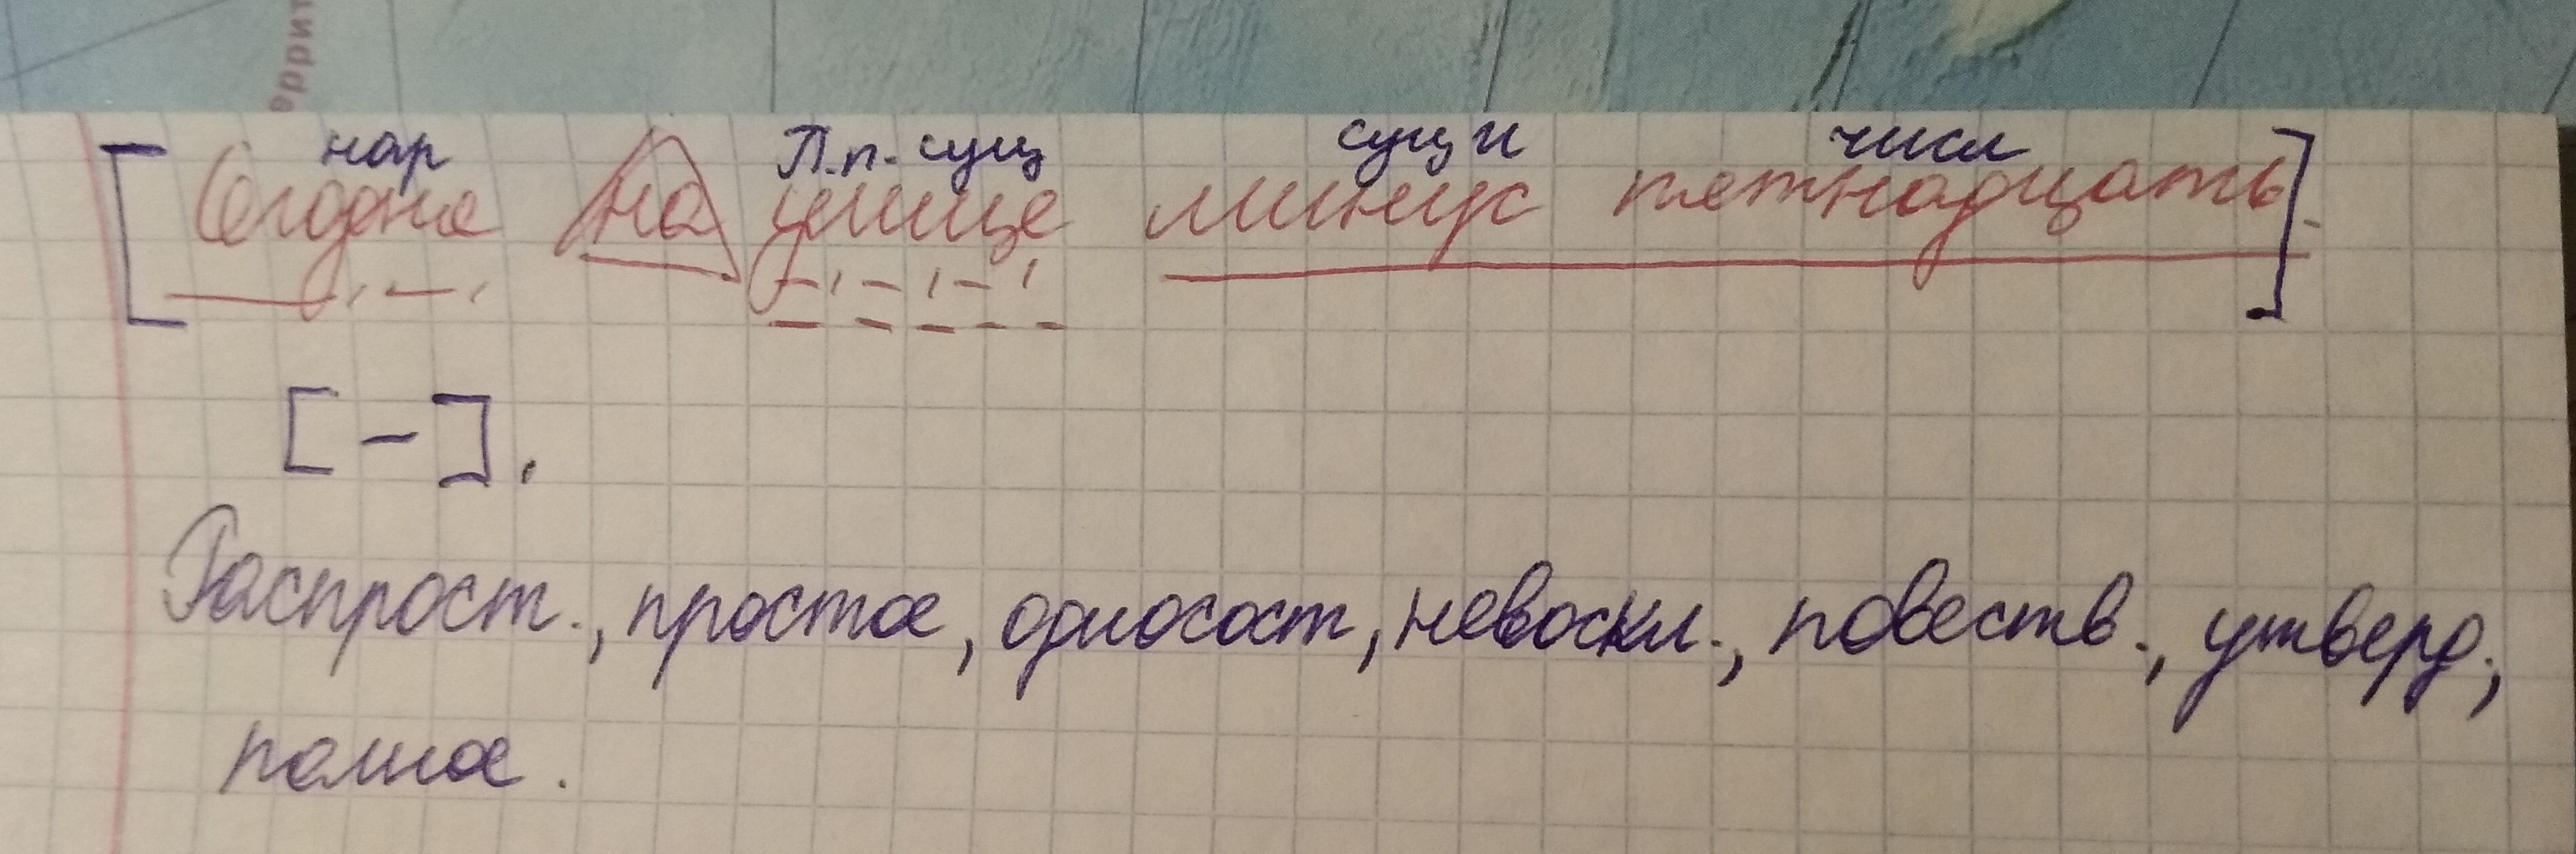 еррит
нар П.п. сущ сущ и числ
[Сегодня на улице минус пятнадцать].
[-].
Распрост., простое, односост, невоскл., повеств., утверд.,
полное.